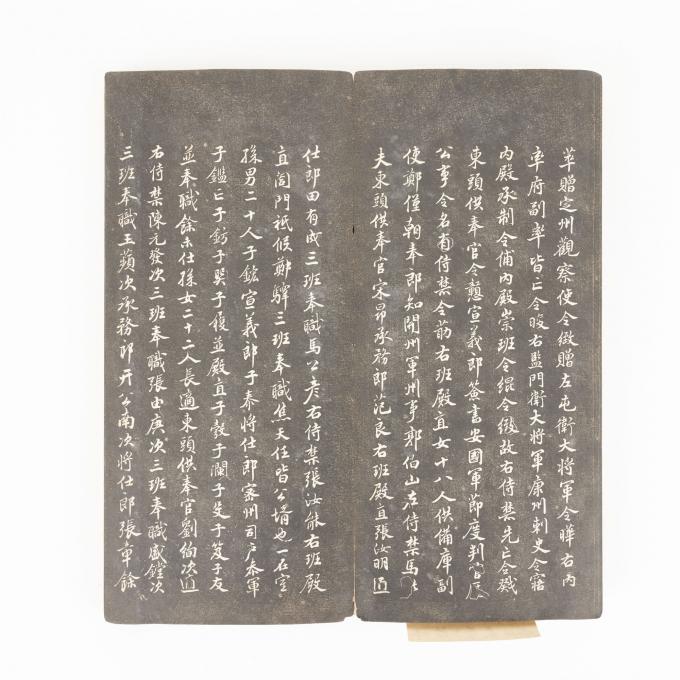 萃贈定州觀察使令緻贈左屯衛大將軍令曄右內
率府副率皆亡令晙右監門衛大將軍康州刺史令寤
內殿承制令俌內殿崇班令緄令綴故右侍禁先亡令戣
東頭供奉官令憩宣義郎簽書安國軍節度判官
公事令名右侍禁令莇右班殿直女十八人供備庫副
使鄭僅朝奉郎知開州軍州事郭伯山左侍禁馬
夫東頭供奉官宋昂承務郎范良右班殿直張汝明通
仕郎田有成三班奉職馬公彥右侍禁張汝能右班殿
直閤門祗候鄭驛三班奉職焦天任皆公壻也一在室
孫男二十人子鋐宣義郎子泰將仕郎密州司戶參軍
子鑑亡子鈁子巽子履並殿直子毂子瀾子先子芨子友
並奉職餘未仕孫女二十二人長適東頭供奉官劉绚次適
右侍禁陳元發次三班奉職張由庚次三班奉職盛鏜次
三班奉職王蘋次承務郎开公南次將仕郎張車餘